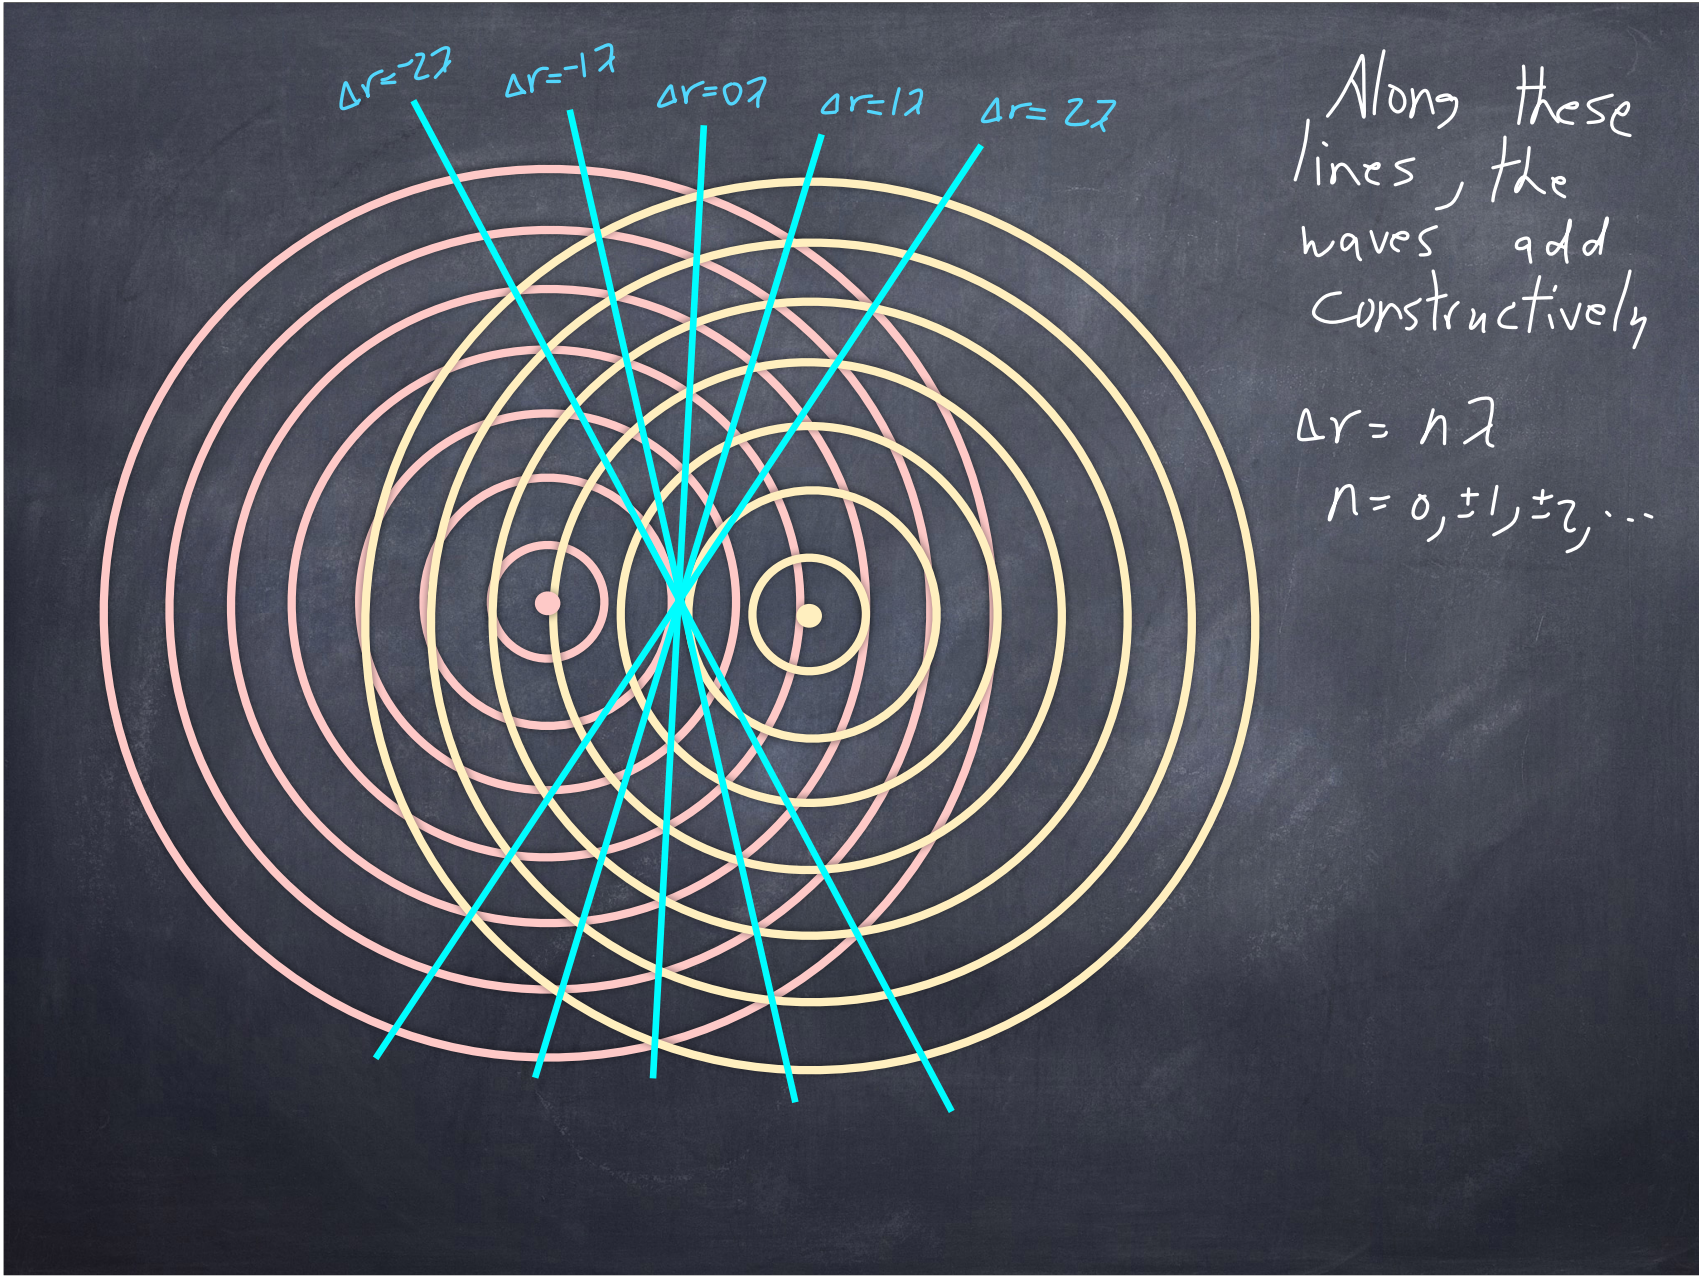 Δr=-2λ
Δr=-1λ
Δr=0λ
Δr=1λ
Δr= 2λ
Along these
lines, the
waves add
constructively
Δr= nλ
n= 0, ±1, ±2, ...